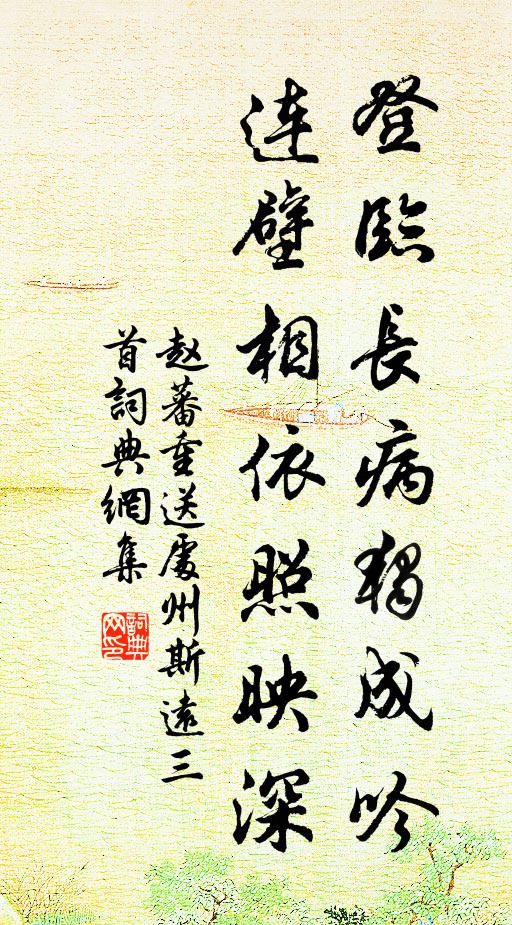 登臨長病獨成吟
連璧相依照映深
赵蕃重送處州斯遠三
首詞典網集
詞典网印